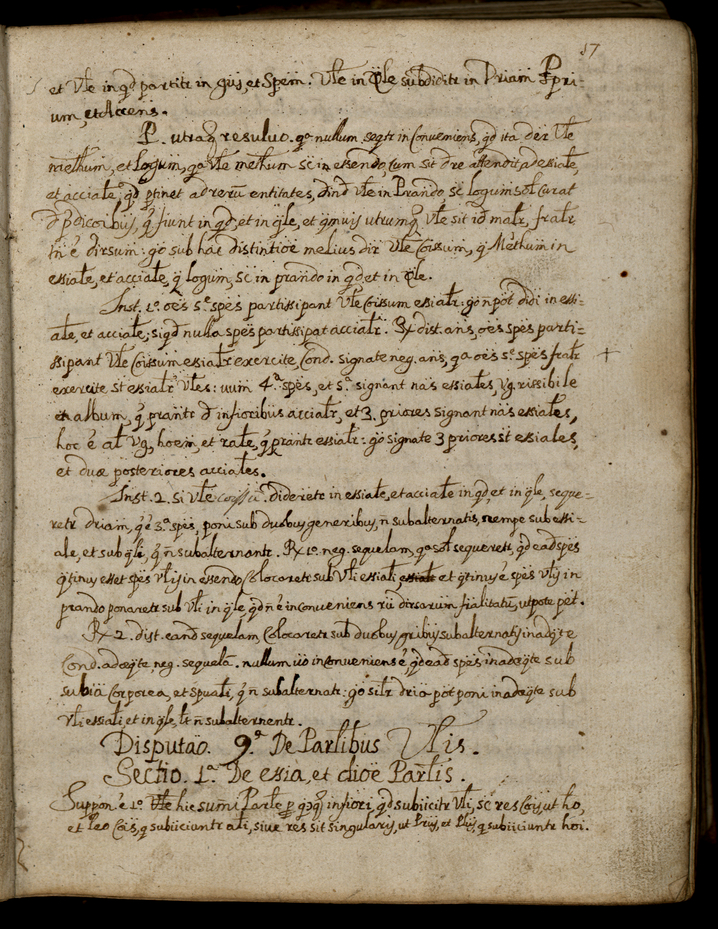 17
et Vłe in qd partitr in gũs, et Spem. Vłe in Qle subdiditr in Driam ppri-
um, et Accens.
P. utraq resuluo. qa nullum seqtr in Conveniens, qd ita der Vłe
methum, et Logum, qa vłe methum sc in essendo, cum sit dre attendit ad essiałe,
et acciałe, qd ptinet ad rerũ entitates, dind vłe in Prando sc logum sol curat
d pdicoibus, q fiunt in qd, et in qle, et qmuis utrumq vłe sit id matr, frałr
tn è dirsum: go sub hac distintioe melius dir vłe Coissum, q Methum in
essiałe, et acciałe, q logum, sc in prando in qd et in qle.
Inst. 1º oes 5e spes partissipant vłe Coissum essiałr: go n pot didi in essi-
ałe, et acciałe; siqd nulla spes partissipat acciałr. Rx dist. ans, oes spes parti-
ssipant vłe Coissum essiałr exercite, Cond. signate neg. ans, qa oes 5e spes frałr
exercite st essiałr vłes: uum 4a spes, et 5a signant nas essiałes, vg. rissibile
album, q prantr d infioribus acciałr, et 3 priores signant nas essiałes,
hoc è ał vg, hoem, et rałe, q prantr essiałr: go signate 3 priores st essiałes,
et duæ posteriores acciałes.
Inst. 2. si vłe coissũ dideretr in essiałe, et acciałe in qd, et in qle, seque-
retr driam, q è 3a spes, poni sub duobus generibus, ñ subalternatis, nempe sub essi-
ałe, et sub qli, q ñ subalternantr. Rx 1º neg. sequelam, qa sol sequeretr, qd ead spes
qtinus esset spes vlis in essendo Colocaretr sub vli essiali et qtinus è spes vlis in
prando ponaretr sub vli in qle, qd ñ è inconveniens rũ dirsarum frialitatũ, utpote pet.
Rx 2. dist. eand sequelam Colocaretr sub duobus gribus subalternatis inadeqte
Cond. adeqte, neg. sequelã. nullum ũo inconveniens è, qd ead spes inadeqte sub
subia Corporea, et spuali, q ñ subalternatr: go siłr dria pot poni inadeqte sub
vli essiali, et in qle, lt ñ subalternentr.
Disputao. 9.a De Partibus Vlis.
Sectio. 1.a De essia, et dioe Partis.
Suppon è 1º Vłe hic sumi Parte p qoqq infiori, qd subiicitr vli, sc res Cois, ut ho,
et leo Cois, q subiiciuntr ali, siue res sit singularis, ut Prus, et Plus, q subiiciuntr hoi.